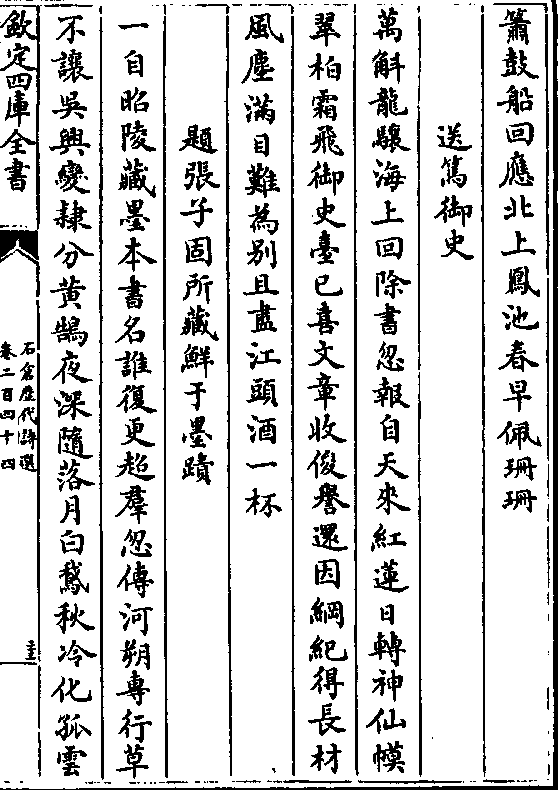 簫鼓船回應北上鳳池春早佩珊珊
送篤御史
萬斛龍驤海上回除書忽報自天來紅蓮日轉神仙幙
翠柏霜飛御史臺已喜文章收俊譽還因綱紀得長材
風塵滿目難為別且盡江頭酒一杯
題張子固所藏鮮于墨蹟
一自昭陵藏墨本書名誰復更超羣忽傳河朔專行草
不讓吳興變隸分黄鵠夜深隨落月白鵞秋冷化孤雲
欽定四庫全書
石倉歴代詩選
卷二百四十四